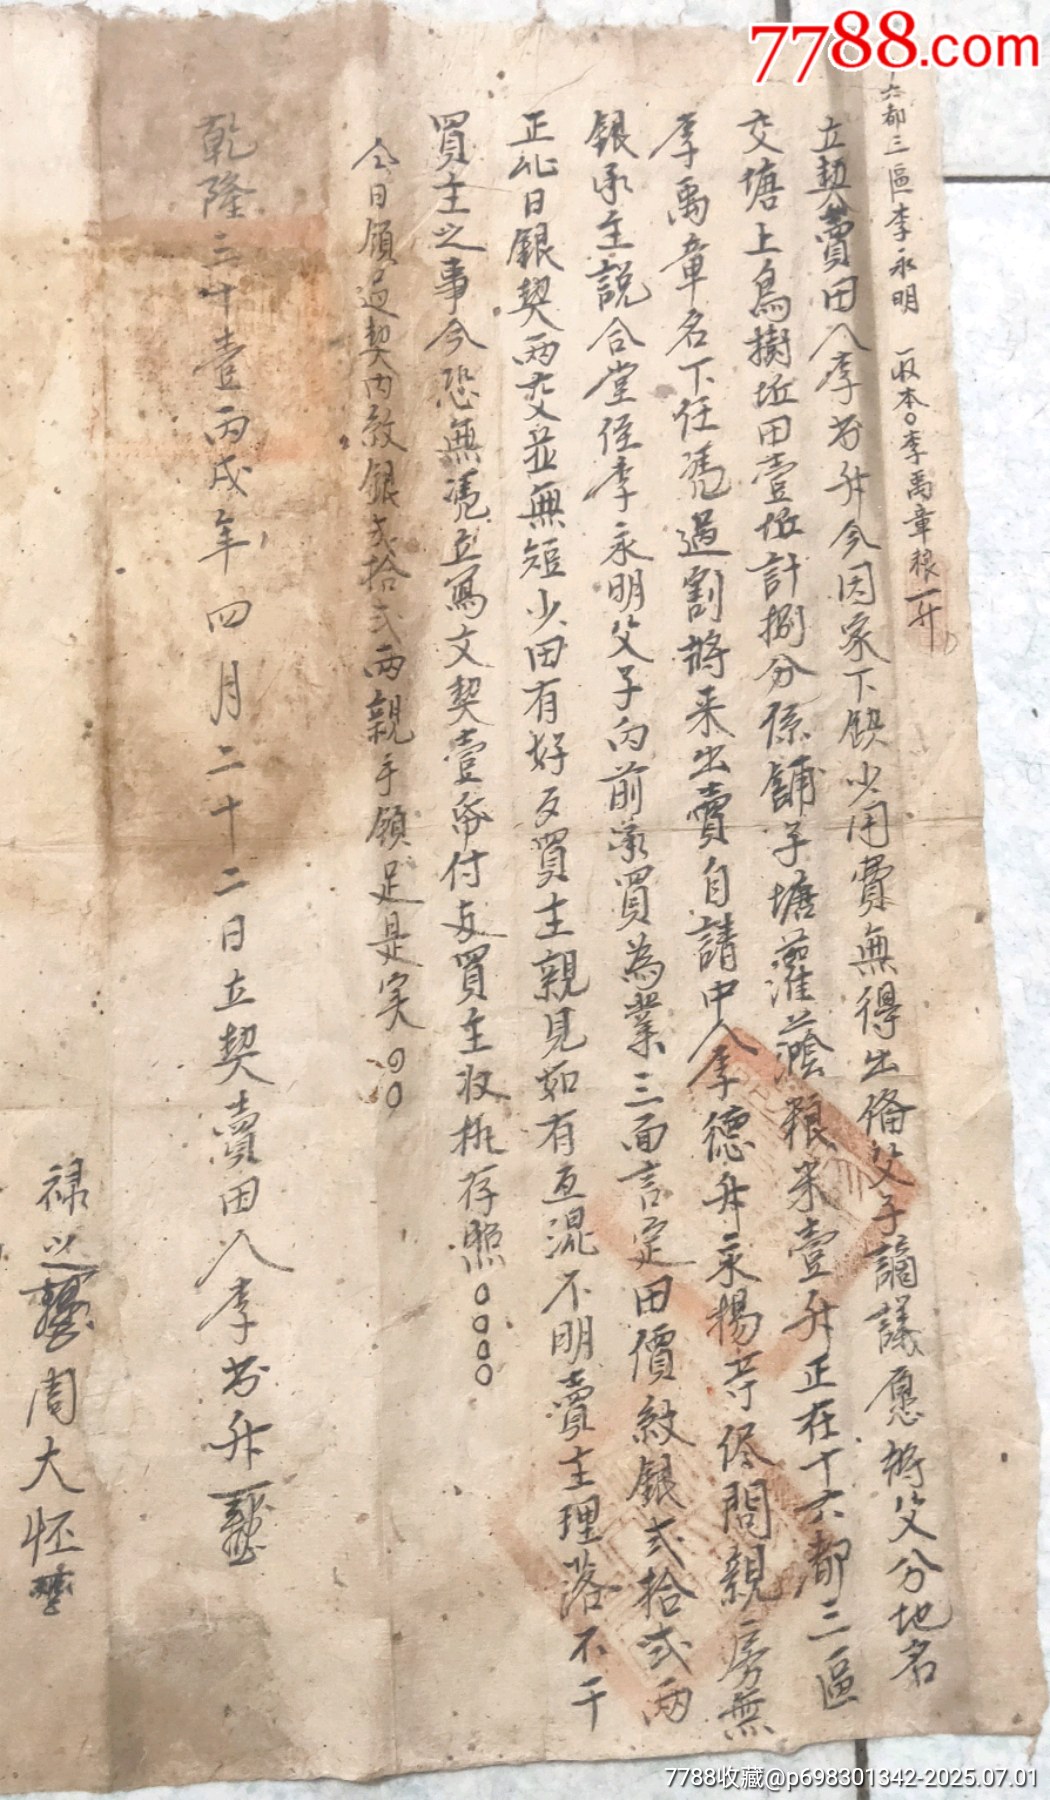 7788.com
六都三區李永明 收本〇李禹章粮一升
立契賣田人李芳升今因家下缺少用費無得出俻父子謫議愿將父分地名
交塘上鳥樹坵田壹坵計捌分係舗子塘灌蔭粮米壹升正在十六都三區
李禹章名下任憑過割將来出賣自請中人李德升永楊等俻問親房無
銀承主説合堂侄李永明父子向前承買為業三面言定田價紋銀弍拾弍兩
正此日銀契兩交並無短少田有好歹買主親見如有互混不明賣主理落不干
買主之事今恐無憑立寫文契壹帋付与買主收执存照〇〇〇〇
仝日領過契內紋銀弍拾弍兩親手領足是实〇〇
乾隆三十壹丙戌年四月二十二日立契賣田人李芳升
禄之 周大怀
7788收藏@p698301342-2025.07.01